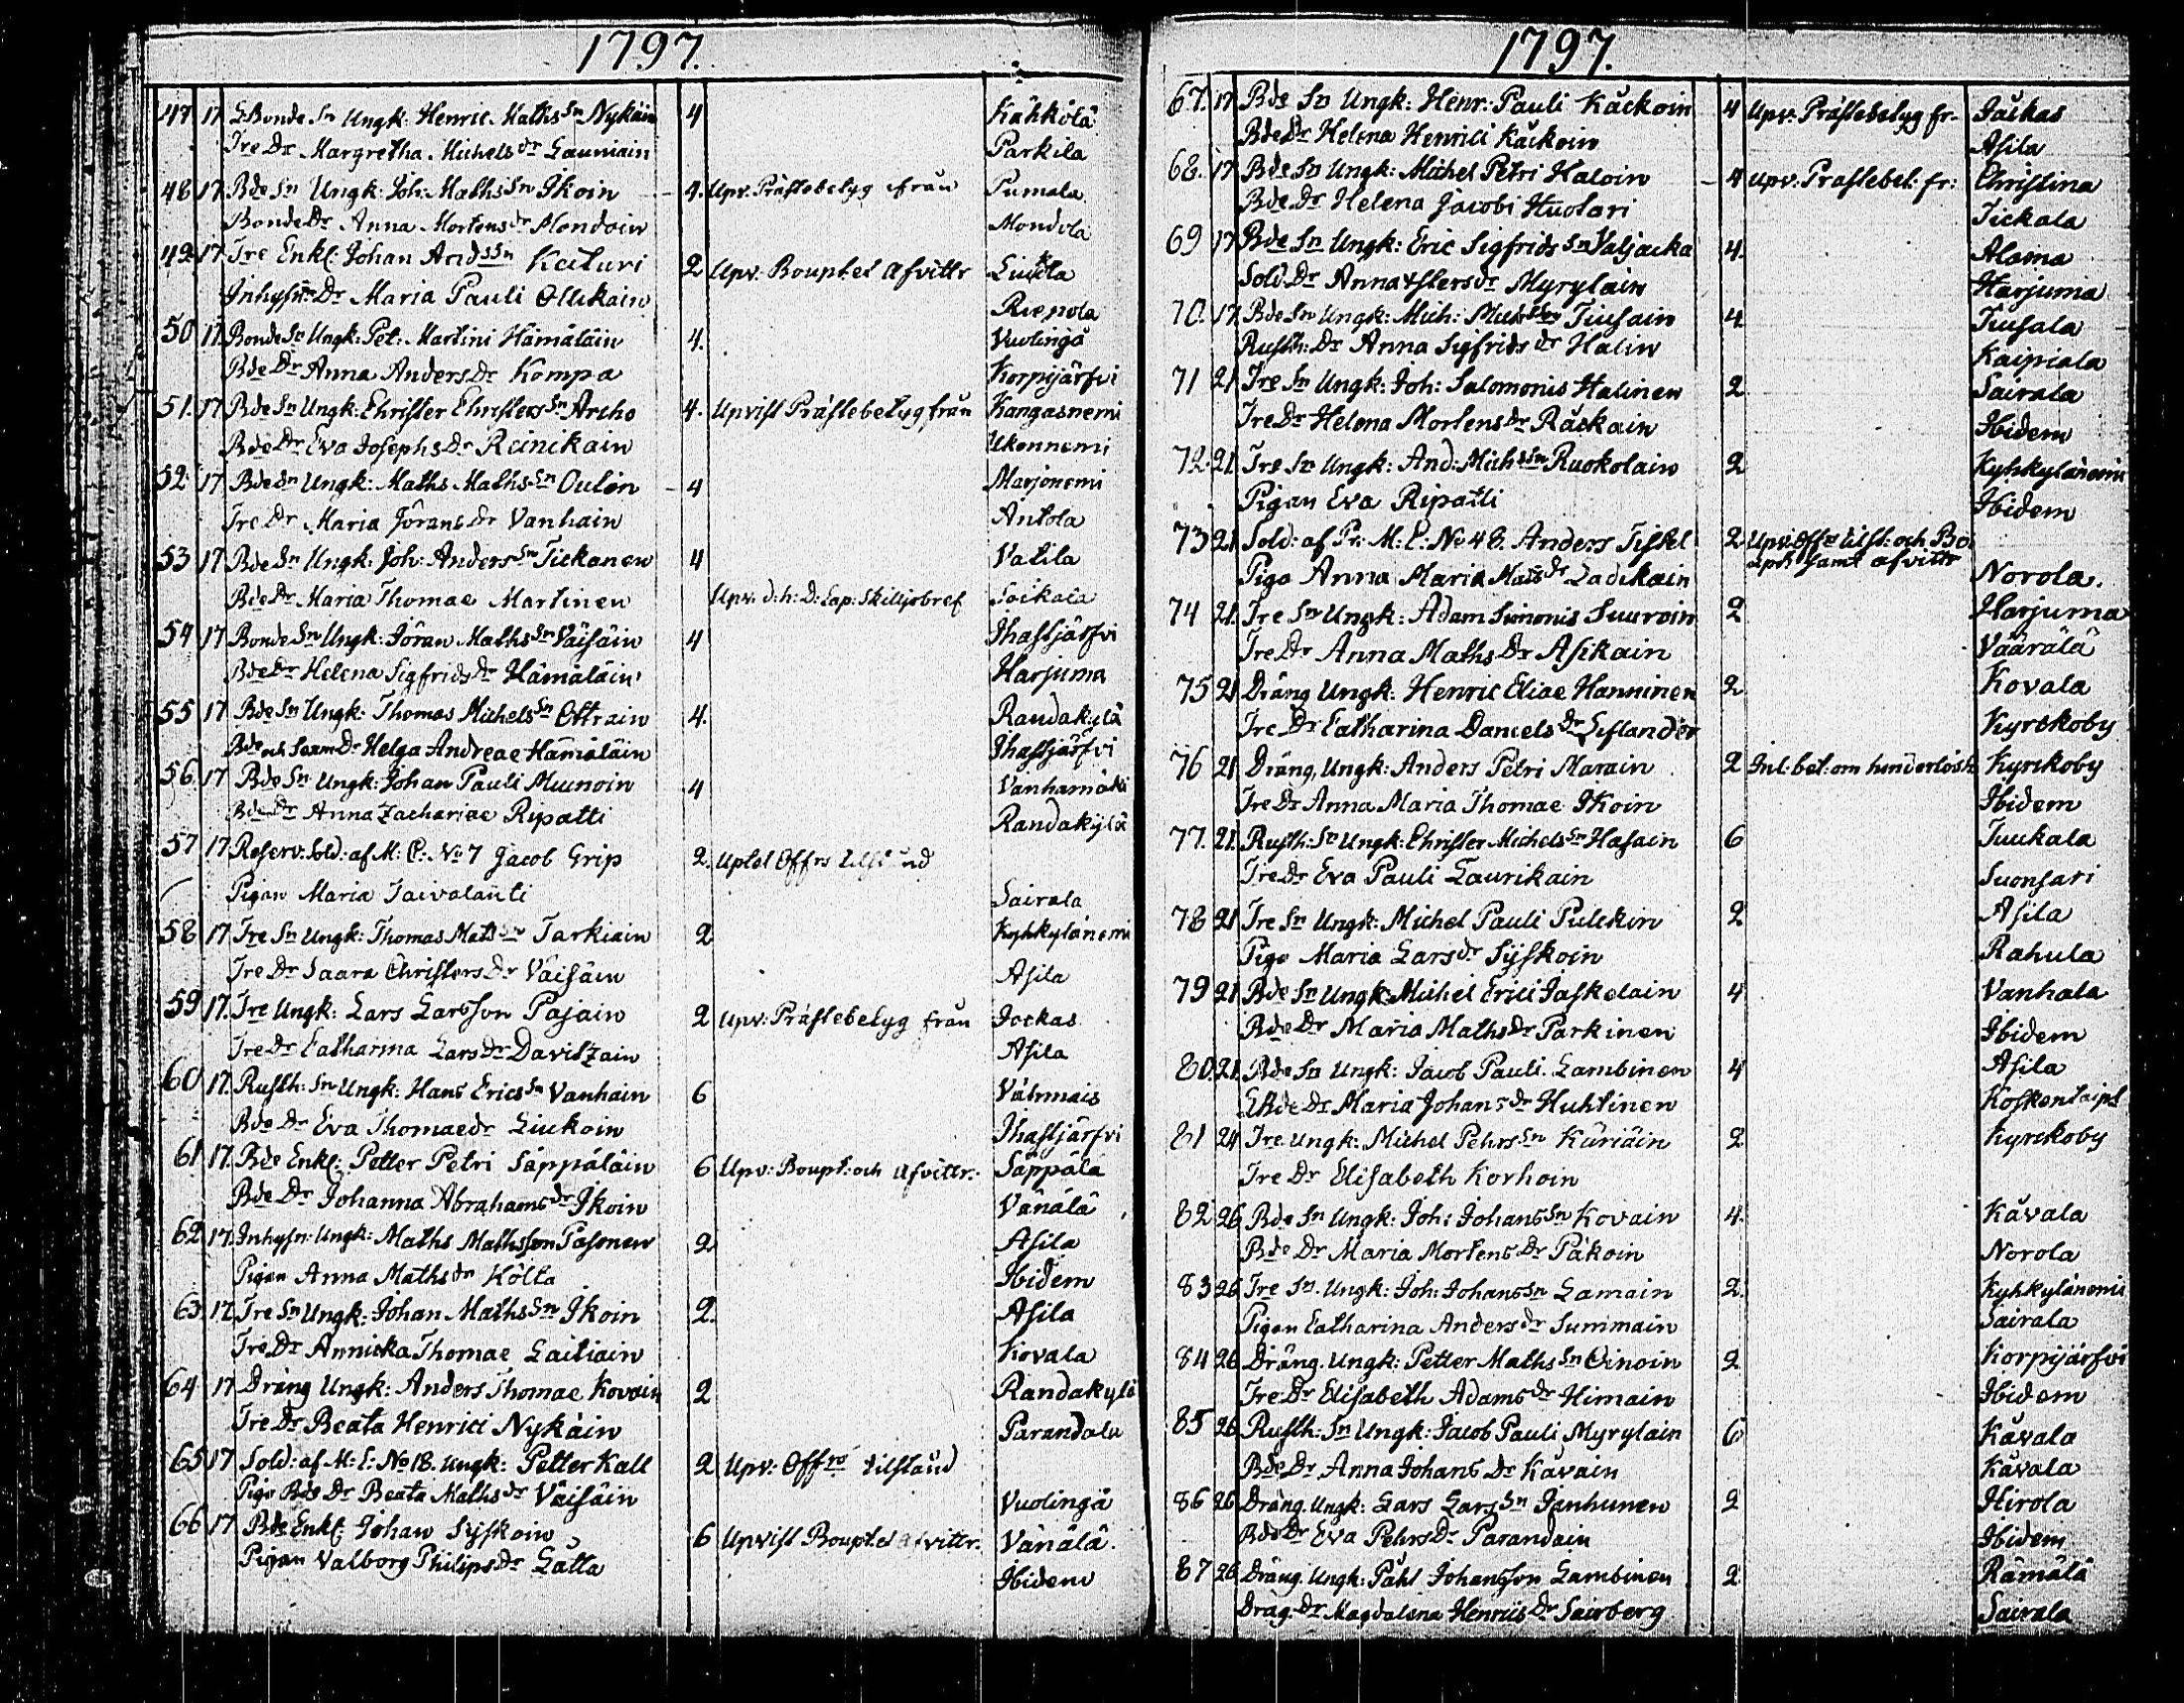 1797.
47 17 E Bonde Sn Ungk: Henric Maths Sn Nykäin 4 Kähkölä
Tre Dr Margretha Michels dr Launiain Parkila
48 17 Bde Sn Ungk: Joh: Maths Sn Ikoin 4. Upv. Prästebetyg från Pumala
Bonde Dr Anna Mortens dr Mondoin Mondola
49 17 Tre Enkl: Johan Ands Sn Kaituri 2 Upv: Boupt: et Afvittr Liukola
Inhysn: Dr Maria Pauli Ollikain Riepola
50 17. Bonde Sn Ungk: Pet: Martini Hämäläin 4. Vuolingå
Bde Dr Anna Anders Dr Kompa Korpijärfvi
51. 17 Bde Sn Ungk: Christer Christers Sn Archo 4. Upvist Prästebetyg från Kangasnemi
Bde Dr Eva Josephs Dr Reinikain Ukonnemi
52 17 Bde Sn Ungk: Maths Maths Sn Oulen 4 Marjonemi
Tre Dr Maria Jörans Dr Vanhain Antola
53 17 Bde Sn Ungk: Joh: Anders Sn Tickanen 4 Vatila
Bde Dr Maria Thomae Martinen Upv. d.h: D: Cap: Skilljobref Soikala
54 17 Bonde Sn Ungk: Jöran Maths Sn Väisäin 4 Ihastjärfvi
Bde Dr Helena Sigfrids Dr Hämäläin Harjuma
55 17 Bde Sn Ungk: Thomas Michels Sn Ottrain 4. Randakylä
Bde och Saxm Dr Helga Andreae Hämäläin Ihastjärfvi
56 17 Bde Sn Ungk: Johan Pauli Muinoin 4 Vanhamäki
Bde Dr Anna Zachariae Ripatti Randakylä
57 17 Reserv: Sold: af M: C: No 7 Jacob Grip 2. Uptel Offrs tilst nd
Pigan Maria Taivalanti Sairala
58 17 Tre Sn Ungk: Thomas Mats Sn Tarkiain 2 Kyhkylänemi
Tre Dr Saara Christers Dr Väisäin Asila
59 17. Tre Ungk: Lars Larsson Pajain 2 Upv: Prästebetyg från Jockas
Tre Dr Catharina Lars Dr Davitzain Asila
60 17. Rusth: Sn Ungk: Hans Erics Sn Vanhain 6 Valmais
Bde Dr Eva Thomae dr Liukoin Ihastjärfvi
61 17. Bde Enkl: Petter Petri Säppäläin 6 Upv: Boupt: och Afvittr: Säppälä
Bde Dr Johanna Abrahams dr Ikoin Vänälä
62 17. Inhysn: Ungk: Maths Mathsson Pasonen 2 Asila
Pigan Anna Maths dr Költa Ibidem
63 17. Tre Sn Ungk: Johan Maths Sn Ikoin 2. Asila
Tre Dr Annicka Thomae Laitiain Kovala
64 17 Dräng Ungk: Anders Thomae Kovain 2 Randakylä
Tre Dr Beata Henrici Nykäin Parandala
65 17 Sold: af M: C: No 18. Ungk: Petter Kall 2 Upv: Offrs tilstånd
Piga Bde Dr Beata Maths dr Väisäin Vuolingå
66 17 Bde Enkl: Johan Syskoin 6 Upvist Boupt: et Afvittr. Vänälä
Pigan Valborg Philips Dr Lätta Ibidem
1797.
67. 17 Bde Sn Ungk: Henr: Pauli Käckoin 4 Upv. Prästebetyg fr. Jåckas
Bde Dr Helena Henrici Käckoin Asila
68. 17 Bde Sn Ungk: Michel Petri Haloin 4 Upv. Prastebet: fr: Christina
Bde Dr Helena Jacobi Huolari Tickala
69 17 Bde Sn Ungk: Eric Sigfrids Sn Valjacka 4. Alama
Sold Dr Anna Esters dr Myrylain Harjuma
70. 17. Bde Sn Ungk: Mich: Michs Sn Tiusain 4 Tiusala
Rusth: Dr Anna Sigfrids dr Halin Kaipiala
71 21 Tre Sn Ungk: Joh: Salomonis Halinen 2 Sairala
Tre Dr Helena Mortens Dr Räckain Ibidem
72. 21. Tre Sn Ungk: And: Michs Sn Ruokolain 2 Kyhkylänemi
Pigan Eva Ripatti Ibidem
73 21 Sold: af Pr: M: C: No 48. Anders Tistel 2 Upv. Offrs tilst: och Bo
upt: samt afvittr
Piga Anna Maria Mats dr Ladikain Norola.
74 21. Tre Sn Ungk: Adam Simonis Suuroin 2 Harjuma
Tre Dr Anna Maths Dr Asikain Väärälä
75 21 Dräng Ungk: Henric Eliae Hanninen 2 Kovala
Tre Dr Catharina Daniels Dr Estlander Kyrckoby
76 21 Dräng, Ungk: Anders Petri Marain 2 Inl: bet: om hinderlösh Kyrckoby
Tre Dr Anna Maria Thomae Ikoin Ibidem
77. 21. Rusth: Sn Ungk: Christer Michels Sn Hasain 6 Tuukala
Tre Dr Eva Pauli Laurikain Suonsari
78 21 Tre Sn Ungk: Michel Pauli Pulckin 2 Asila
Piga Maria Lars dr Syskoin Rahula
79 21 Bde Sn Ungk: Michel Erici Jaskelain 4 Vanhala
Bde Dr Maria Maths Dr Parkinen Ibidem
80. 21. Bde Sn Ungk: Jacob Pauli Lambinen 4 Asila
E Bde Dr Maria Johans dr Huhtinen Koskentaipl
81 24 Tre Ungk: Michel Pehrs Sn Käriäin 2 Kyrckoby
Tre Dr Elisabeth Korhoin
82 26 Bde Sn Ungk: Joh: Johans Sn Kovain 4. Kåvala
Bde Dr Maria Mortens Dr Päkoin Norola
83 26 Tre Sn. Ungk: Joh: Johans Sn Lamain 2 Kyhkylänemi
Pigan Catharina Anders dr Summain Sairala
84 26 Dräng. Ungk: Petter Maths Sn Oinoin 2 Korpijärfvi
Tre Dr Elisabeth Adams dr Himain Ibidem
85 26 Rusth: Sn Ungk: Jacob Pauli Myrylain 6 Kåvala
Bde Dr Anna Johans Dr Kåvain Kåvala
86 26 Dräng. Ungk: Lars Lars Sn Janhunen 2 Hirola
Bde Dr Eva Pehrs Dr Parandain Ibidem
87 26 Dräng. Ungk: Påhl Johansson Lambinen 2 Rämälä
Dräg. Dr Magdalena Henrics Dr Sairberg Sairala